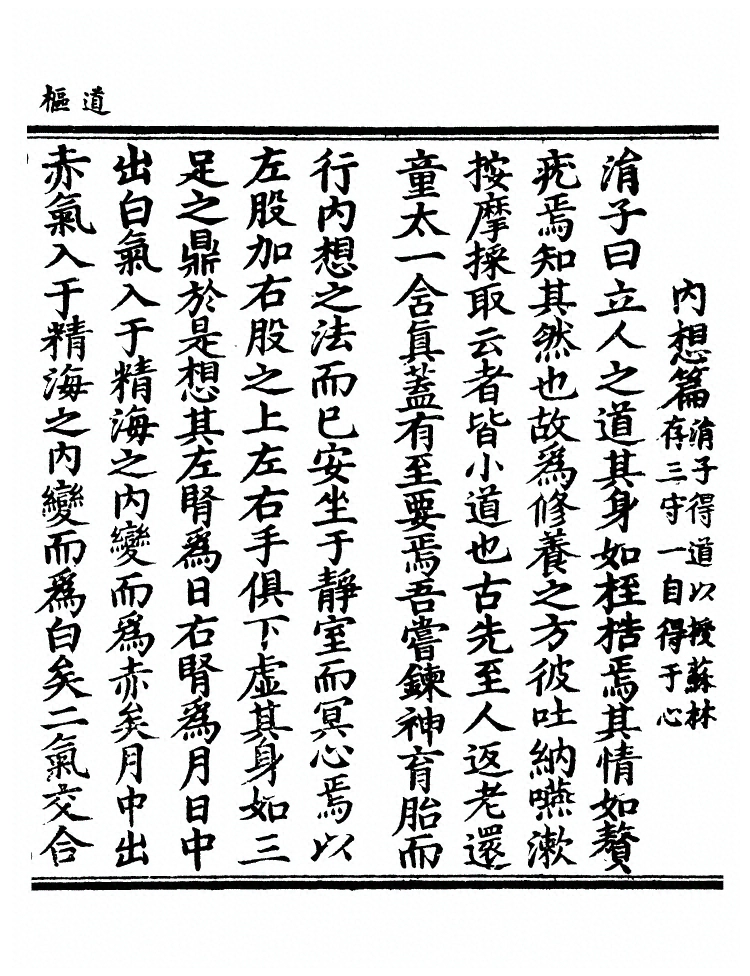 道樞
內想篇
涓子得道以授蘇林
存三守一自得于心
涓子曰立人之道其身如桎梏焉其情如贅
疣焉知其然也故爲修養之方彼吐納嚥漱
按摩採取云者皆小道也古先至人返老還
童太一舍眞蓋有至要焉吾嘗鍊神育胎而
行內想之法而已安坐于靜室而冥心焉以
左股加右股之上左右手俱下虛其身如三
足之鼎於是想其左腎爲日右腎爲月日中
出白氣入于精海之內變而爲赤矣月中出
赤氣入于精海之內變而爲白矣二氣交合